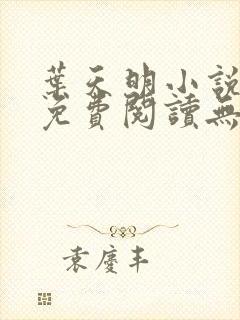 葉天明小說
免費閱讀無
袁慶丰